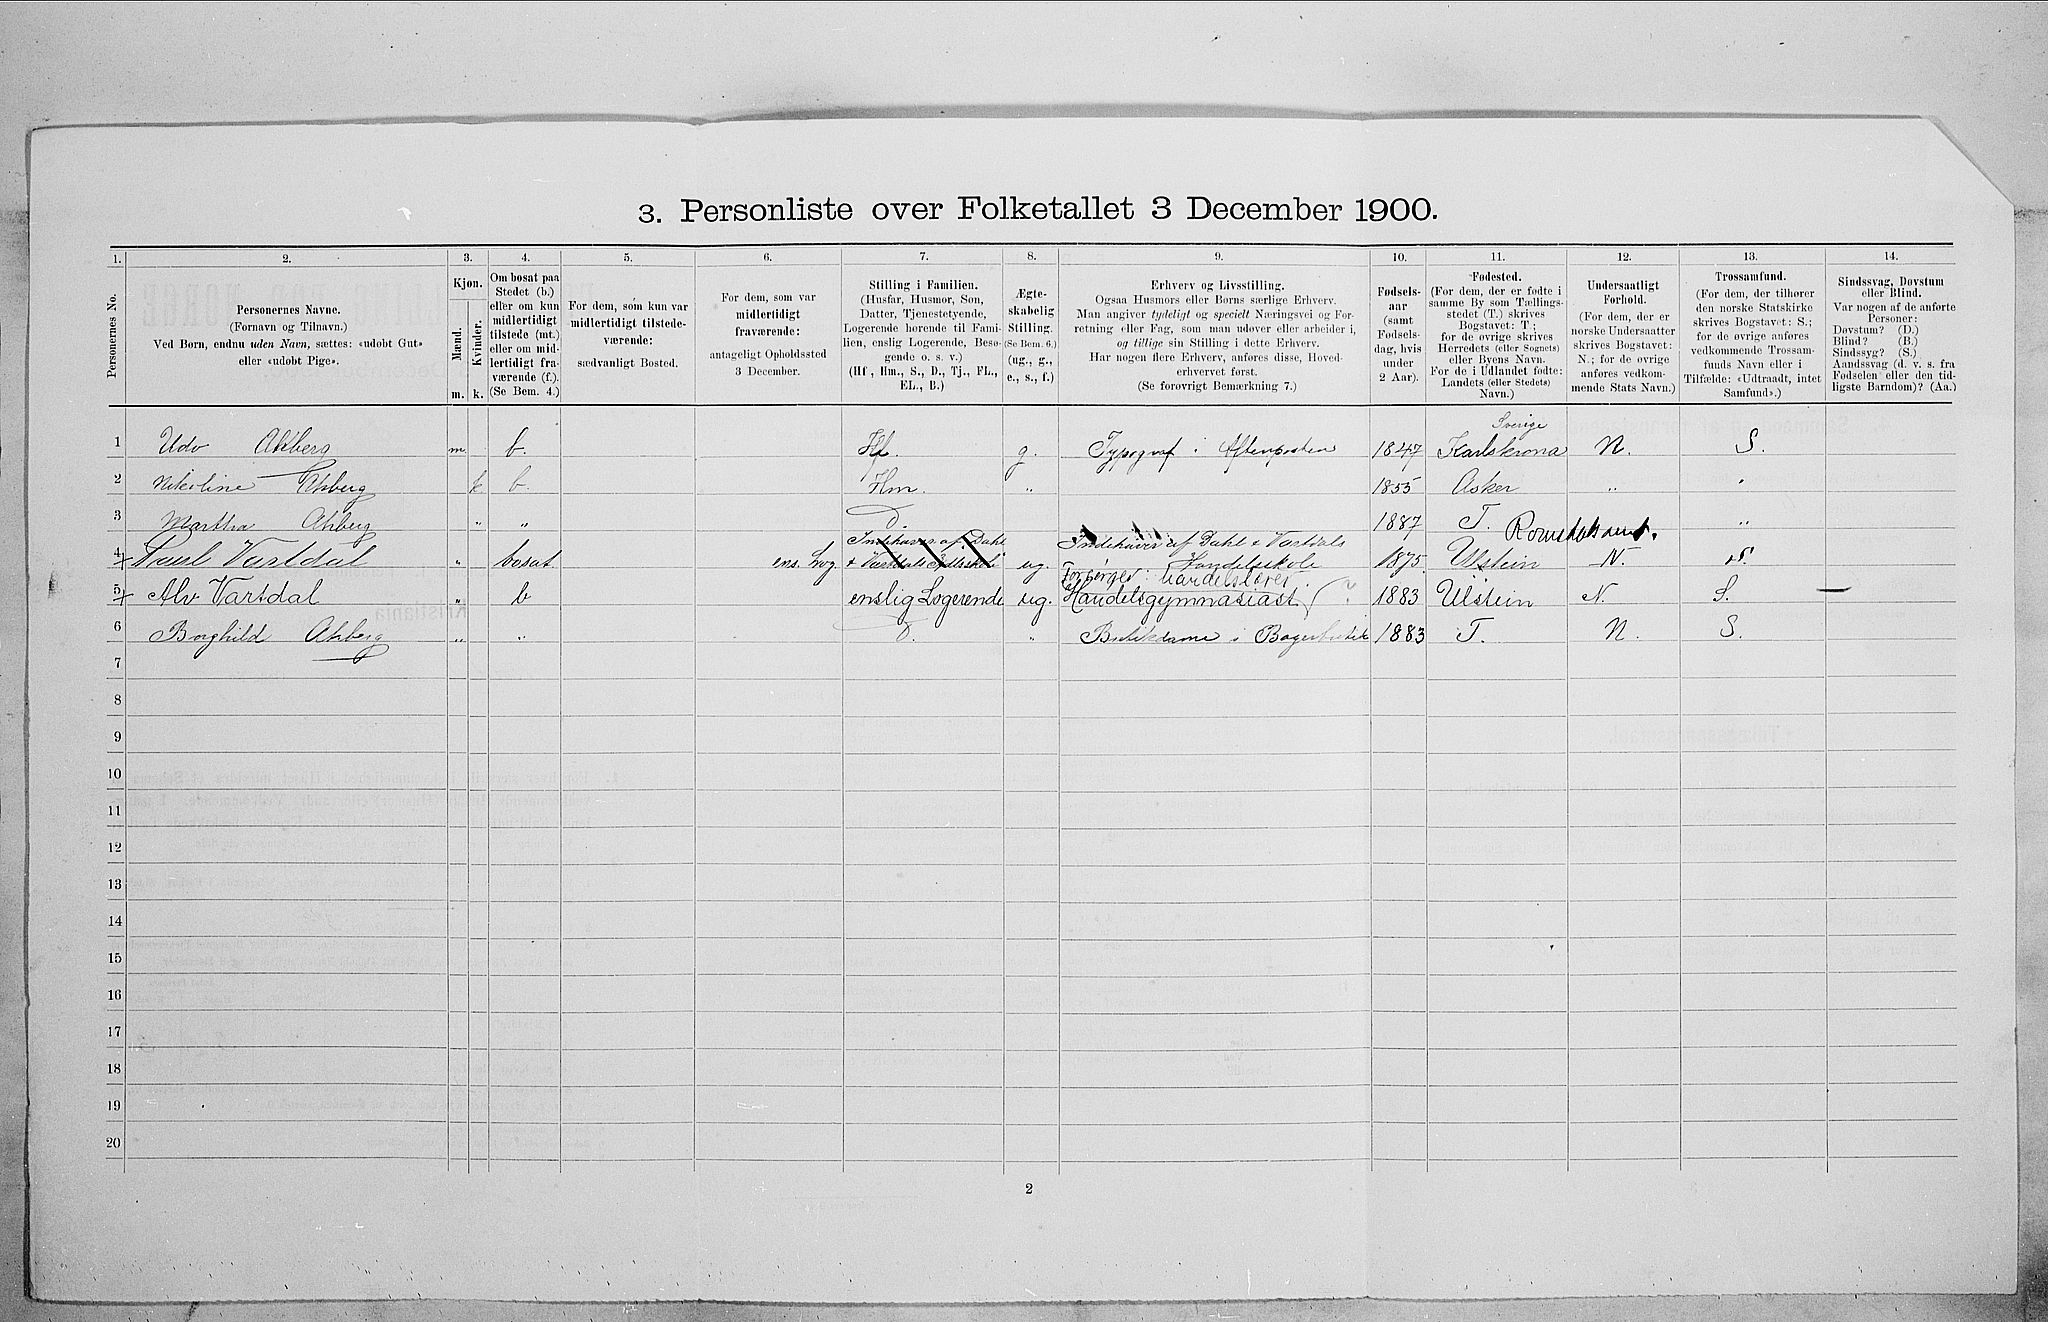 3. Personliste over Folketallet 3 December 1900.
1. 2. 3. 4. 5. 6. 7. 8. 9. 10. 11. 12. 13. 14.
Personernes No.
Personernes Navne.
(Fornavn og Tilnavn.)
Ved Børn, endnu uden Navn, sættes: «udøbt Gut»
eller «udøbt Pige».
Kjøn.
Mænd.
Kvinder.
m. k.
Om bosat paa
Stedet (b.)
eller om kun
midlertidigt
tilstede (mt.)
eller om mid-
lertidigt fra-
værende (f.).
(Se Bem. 4.)
For dem, som kun var
midlertidigt tilstede-
værende:
sædvanligt Bosted.
For dem, som var
midlertidigt
fraværende:
antageligt Opholdssted
3 December.
Stilling i Familien.
(Husfar, Husmor, Søn,
Datter, Tjenestetyende,
Logerende hørende til Fami-
lien, enslig Logerende, Besø-
gende o. s. v.)
(Hf, Hm., S., D., Tj., FL.,
EL., B.)
Ægte-
skabelig
Stilling.
(Se Bem. 6.)
(ug., g.,
e., s., f.)
Erhverv og Livsstilling.
Ogsaa Husmors eller Børns særlige Erhverv.
Man angiver tydeligt og specielt Næringsvei og For-
retning eller Fag, som man udøver eller arbeider i,
og tillige sin Stilling i dette Erhverv.
Har nogen flere Erhverv, anføres disse, Hoved-
erhvervet først.
(Se forøvrigt Bemærkning 7.)
Fødsels-
aar
(samt
Fødsels-
dag, hvis
under
2 Aar).
Fødested.
(For dem, der er fødte i
samme By som Tællings-
stedet (T.) skrives
Bogstavet: T;
for de øvrige skrives
Herredets (eller Sognets)
eller Byens Navn.
For de i Udlandet fødte:
Landets (eller Stedets)
Navn.)
Undersaatligt
Forhold.
(For dem, der er
norske Undersaatter
skrives Bogstavet:
N.; for de øvrige
anføres vedkom-
mende Stats Navn.)
Trossamfund.
(For dem, der tilhører
den norske Statskirke
skrives Bogstavet: S.;
for de øvrige anføres
vedkommende Trossam-
funds Navn eller i
Tilfælde: «Udtraadt, intet
Samfund».)
Sindssvag, Døvstum
eller Blind.
Var nogen af de anførte
Personer:
Døvstum? (D.)
Blind? (B.)
Sindssyg? (S.)
Aandssvag (d. v. s. fra
Fødselen eller den tid-
ligste Barndom)? (Aa.)
Sverige
1 Udo Ahberg m. b. Hf. g. Typograf i Aftenposten 1847 Karlskrona N. S.
2 Nikoline Ahberg k b. Hm. " 1855 Asker " "
3 Martha Ahberg " " D. 1887 T. "
Romsdals amt.
Indehaver af Dahl Indehaver af Dahl & Vartdals
4 Paul Vartdal " bosat ens. Log. & Vartdals ug. Handelsskole 1875 Ulstein N. S.
Forsørges: handelslærer.
5 Alv Vartdal " b enslig Logerende ug. Handelsgymnasiast (? 1883 Ulstein N. S. —
6 Borghild Ahberg " " D. " Butikdame i Bagerbutik 1883 T. N. S.
7
8
9
10
11
12
13
14
15
16
17
18
19
20
2